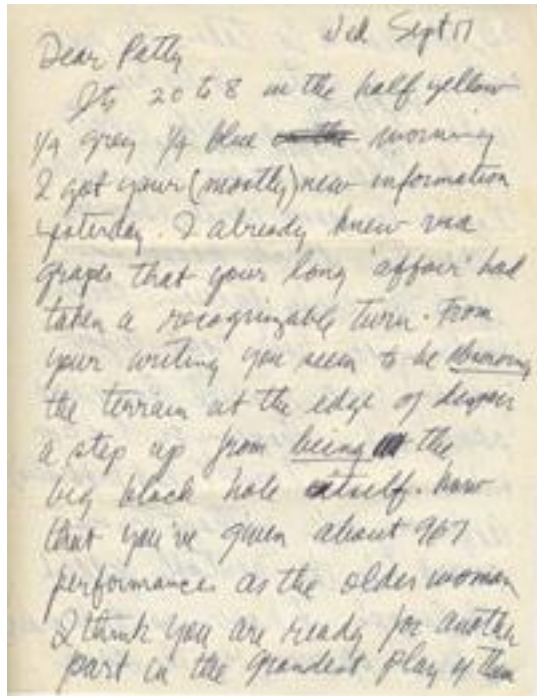 Wed Sept 17
Dear Patty
Its 20 to 8 in the half yellow
1/4 grey 1/4 blue morning
I got your (mostly) new information
yesterday. I already knew via
grape that your long 'affair' had
taken a recognizable turn. From
your writing you seem to be
the terrain at the edge of despair
a step up from being the
big black hole itself. Now
that you've given about 967
performances as the older woman
I think you are ready for another
part in the grandest play of them